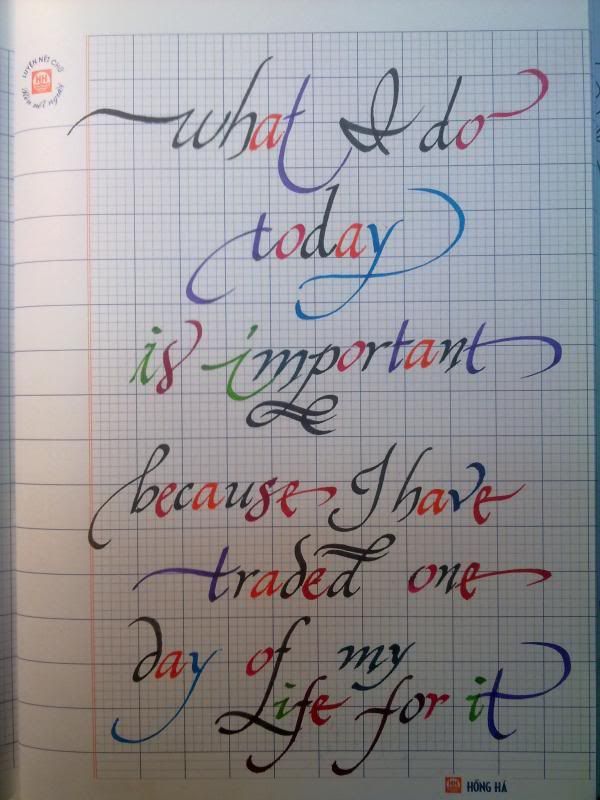 LUYỆN NÉT CHỮ
what I do
today
is important
because I have
traded one
day of my
Life for it
HỒNG HÀ